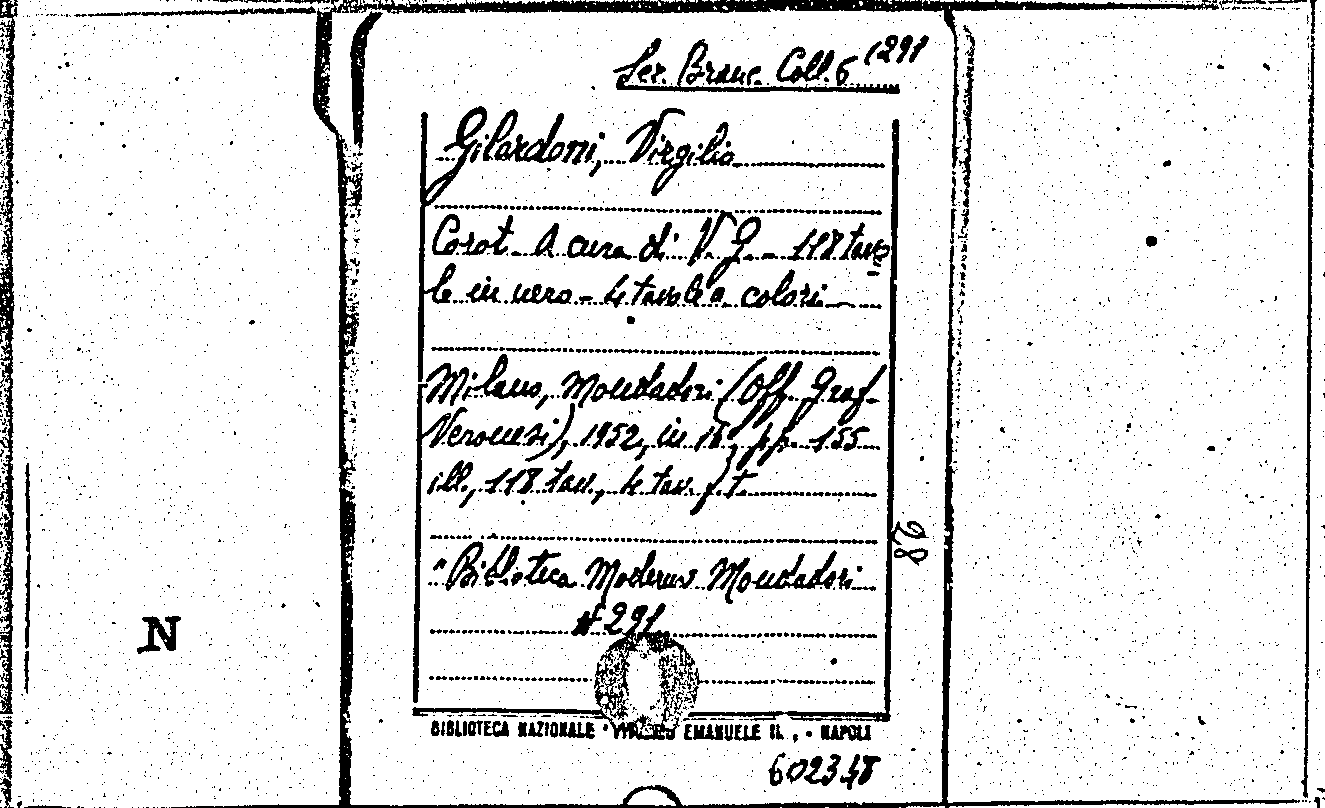 Sez. Branc. Coll. 6 (291
Gilardoni, Virgilio
Corot - A cura di V. G. - 118 tavo=
le in nero - 4 tavole a colori -
Milano, Mondadori (Off. Graf.
Veronesi), 1952, in 16°, pp. 155
ill., 118 tav., 4 tav. f. t.
28
"Biblioteca Moderna Mondadori
N 291
BIBLIOTECA NAZIONALE "VITTORIO EMANUELE II" - NAPOLI
602348
N